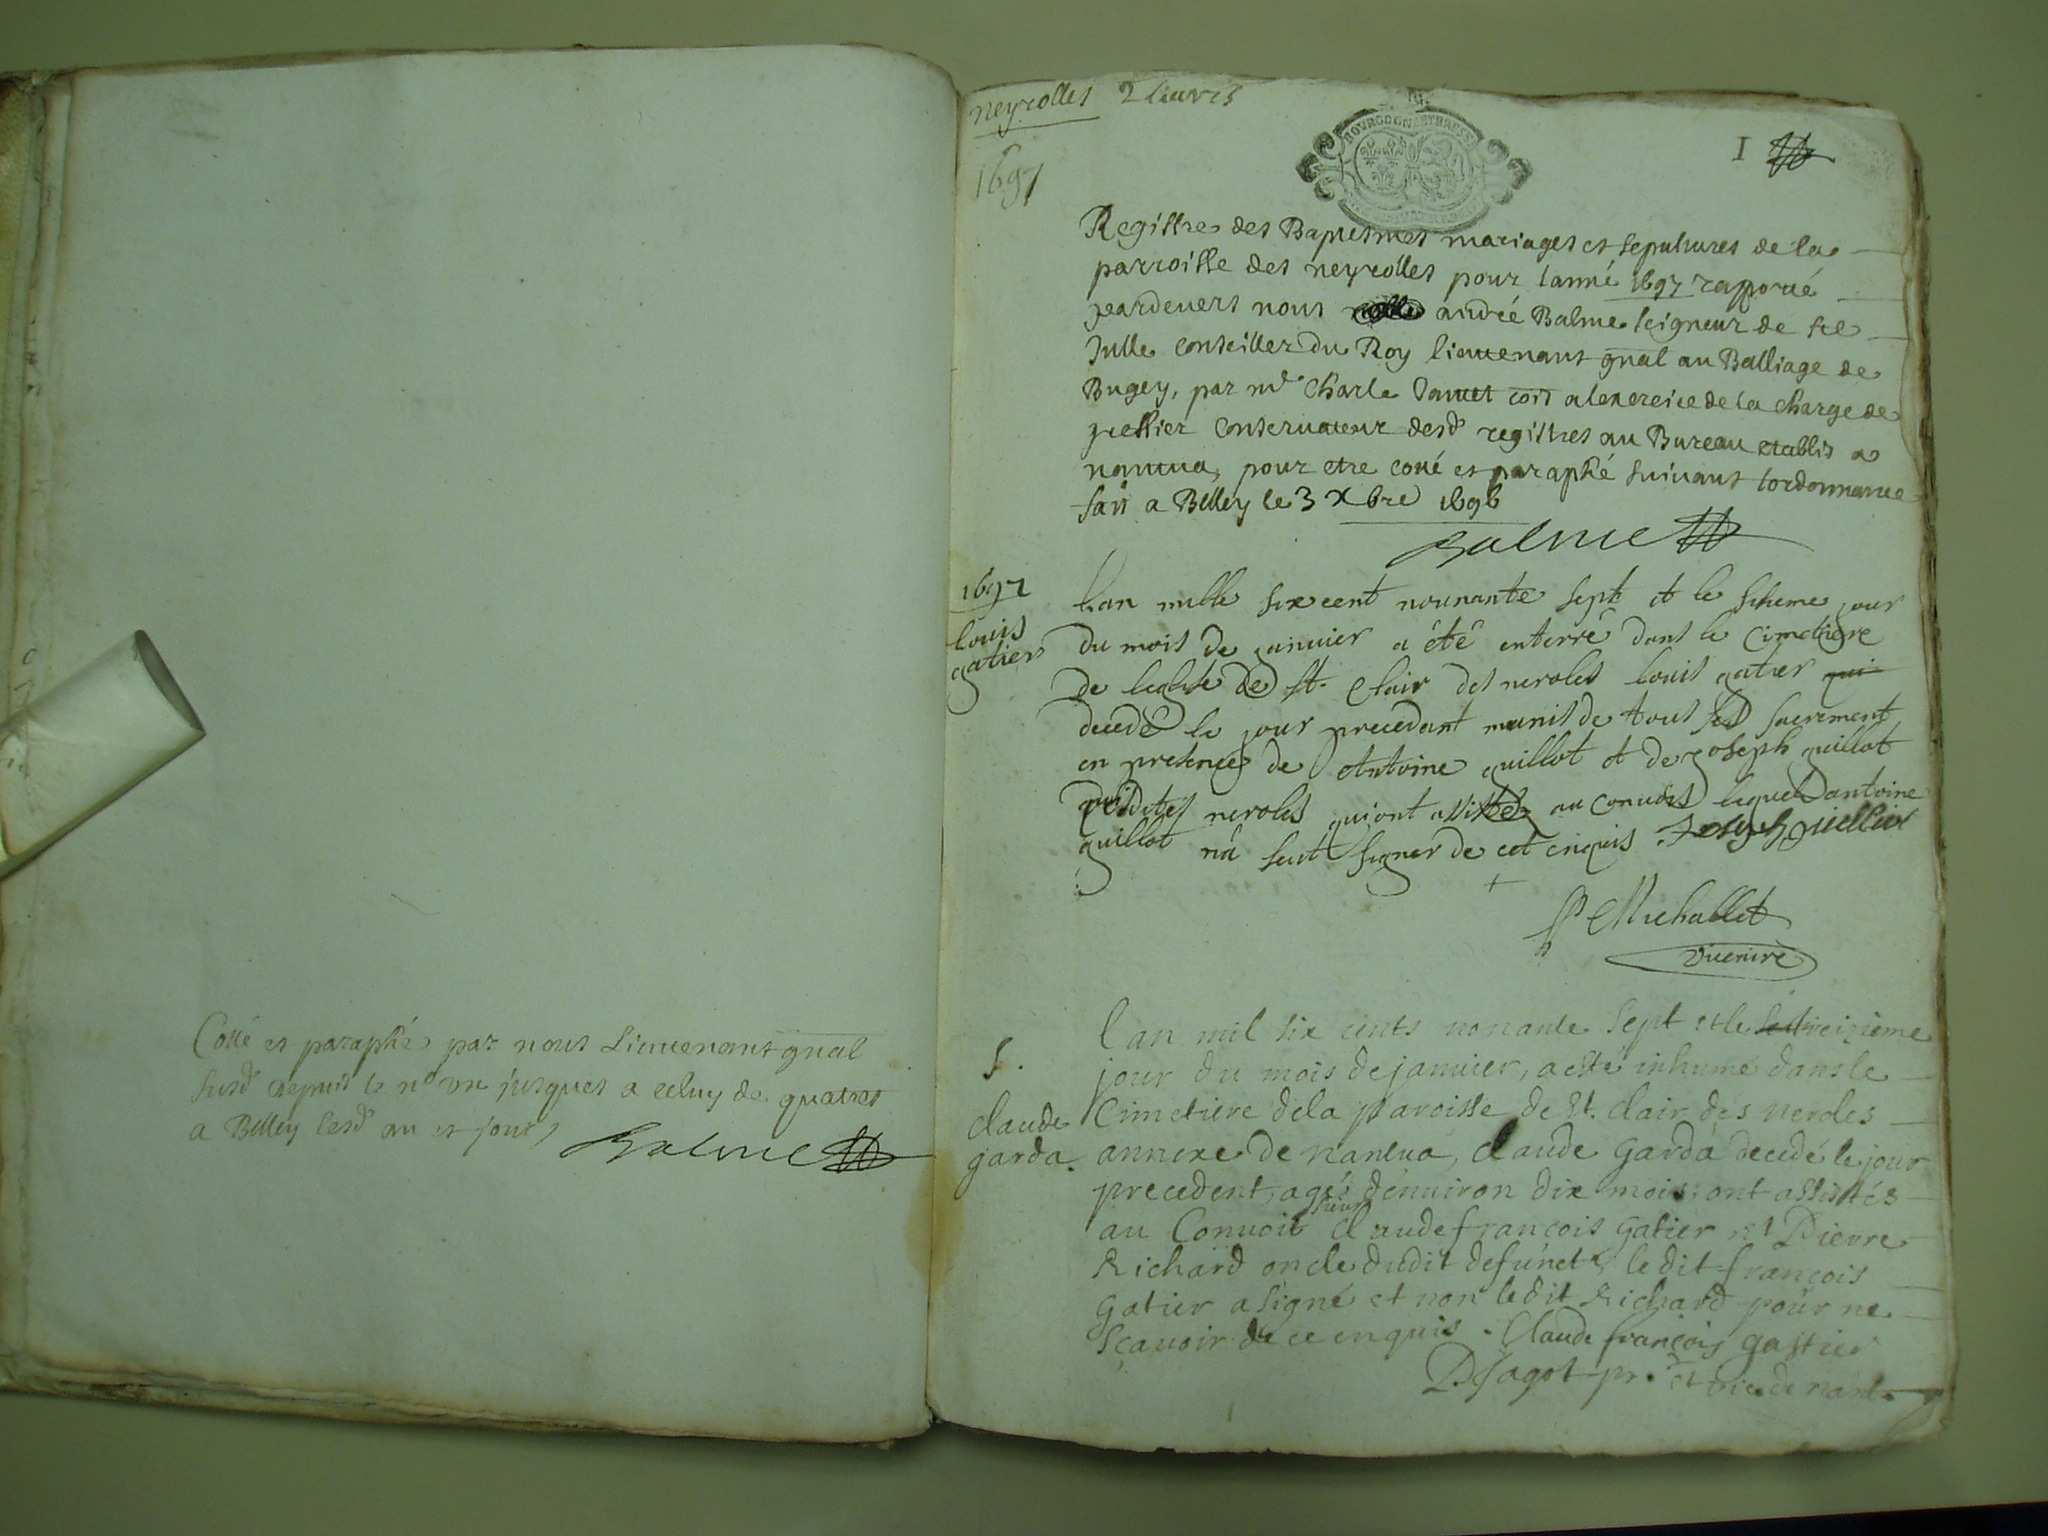 Cotté et paraphé par nous Lieutenant gnal
susd depuis le n° un jusques a celuy de quatres
a Belley lesd an et jour
Balme
neyrolles 2 liuvres
1697
BOURGOGNE ET BRESSE
1
Registre des Baptesmes mariages et sepultures de la
parroisse des neyrolles pour lanné 1697 rapporté
pardevers nous andré Balme seigneur de Ste
Julle conseiller du Roy lieutenant gnal au Balliage de
Bugey, par mr Charle commis a lexercice de la charge de
greffier conservateur desd registres au Bureau etablis a
nantua, pour etre cotté et paraphé suivant lordonnance
fait a Belley le 3 Xbre 1696
Balme
1697
louis
gatier
Lan mille six cent nonante sept et le jour
du mois de janvier a été enterré dans le Cimetiere
de leglise de St. Clair des neroles louis gatier qui
decedé le jour precedant munis de tous ses sacrement
en presence de Antoine guillot et de joseph guillot
neroles qui ont assisté au convois lequel antoine
guillot na seut signer de cet enquis. Joseph guilliot
P Michallet
vicaire
S.
claude
garda.
Lan mil six cents nonante sept et le treizieme
jour du mois de janvier, a esté inhumé dans le
Cimetiere de la paroisse de St. clair des neroles
annexe de nantua, claude garda decedé le jour
precedent, agé denuiron dix mois; ont assistés
au Convoit sieur claude françois gatier et Pierre
Richard oncle dudit defunct, le dit françois
gatier a signé et non le dit Richard pour ne
sçavoir de ce enquis. Claude françois gastier
D. Jagot pr. et vic. de nant.